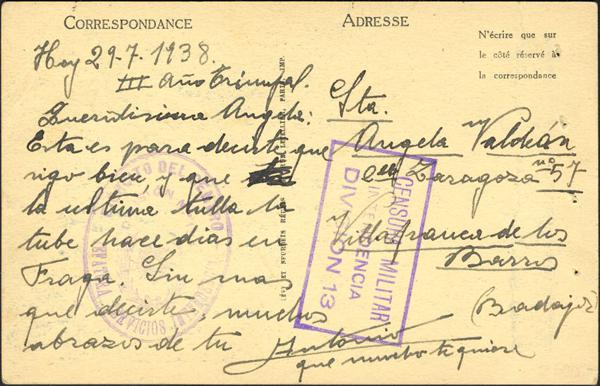 CORRESPONDANCE
ADRESSE
N'écrire que sur
le côté réservé à
la correspondance
Hoy 29-7-1938.
III Año Triunfal.
Queridisima Angela:
Esta es para decirte que
sigo bien y que
la ultima tulla la
tube hace dias en
Fraga. Sin mas
que decirte, muchos
abrazos de tu
Antonio
que mucho te quiere
Sta.
Angela Valdeán
Zaragoza nº 57
Villafranca de los
Barros
(Badajoz)
CENSURA MILITAR
DIVISION 13